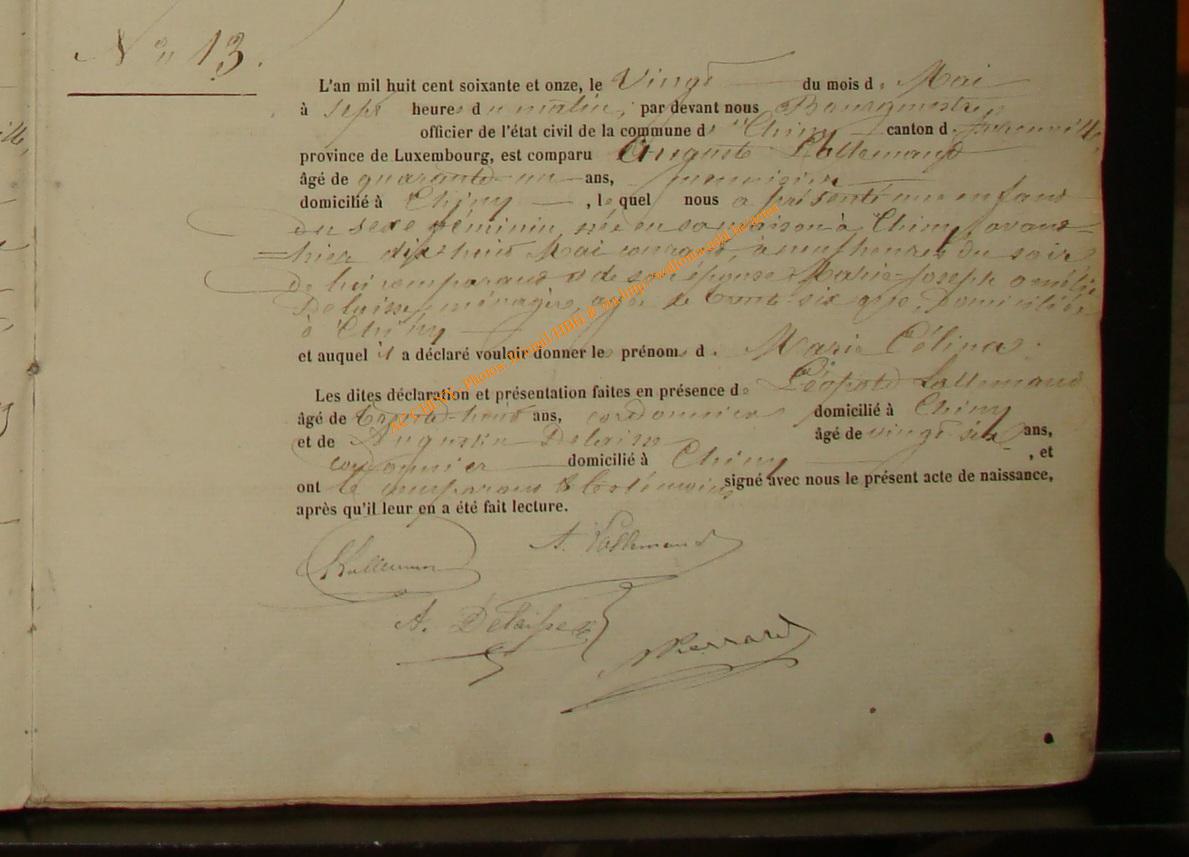 N° 13.
L'an mil huit cent soixante et onze, le Vingt du mois de Mai
à sept heures du matin, par devant nous Bourgmestre
officier de l'état civil de la commune de Chiny canton de Florenville,
province de Luxembourg, est comparu Auguste Lallemand
âgé de quarante-un ans, menuisier
domicilié à Chiny, lequel nous a présenté une enfant
du sexe féminin, née en sa maison à Chiny, avant-
-hier dix-huit Mai courant, à neuf heures du soir
de lui comparant et de son épouse Marie-Joseph Amélie
Delaisse, ménagère, âgée de trente-six ans, domiciliée
à Chiny
et auquel il a déclaré vouloir donner le prénom de Marie Célina.
Les dites déclaration et présentation faites en présence de Léopold Lallemand
âgé de trente-huit ans, cordonnier domicilié à Chiny
et de Augustin Delaisse âgé de vingt-six ans,
cordonnier domicilié à Chiny, et
ont le comparant & les témoins signé avec nous le présent acte de naissance,
après qu'il leur en a été fait lecture.
Lallemand
A. Lallemand
A. Delaisse